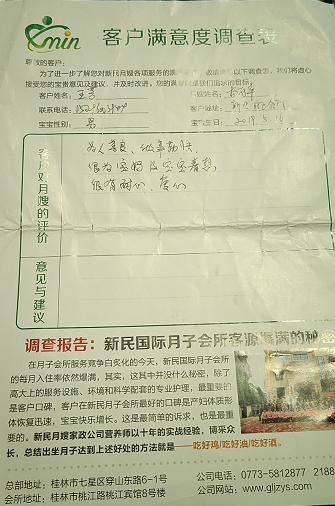 xmin
客户满意度调查表
尊敬的客户：
为了进一步了解您对新民月嫂各项服务的满意度，邀请您以下调查表，我们将虚心
接受您的宝贵意见及建议，并及时改进。您的满意是我们追求的目标。
客户姓名：
月嫂姓名：
联系电话：
客户地址：
宝宝性别：男
宝宝生日：2019.5.16
客户对月嫂的评价
为人善良、
很有耐心、
意见与建议
调查报告：新民国际月子会所客源爆满的秘
在月子会所服务竞争白炙化的今天，新民国际月子会所
的每月入住率依然爆满，其实，这其中并没什么秘密，除了
高大上的服务设施、环境和科学配套的专业护理，最重要的
是客户口碑，客户在新民月子会所最好的口碑是产妇体质形
体恢复迅速，宝宝快乐增长。这是最简单的诉求，也是最重
要的。新民月嫂家政公司营养师以十年的实战经验，博采众
长，总结出坐月子达到上述好处的方法就是——吃好鸡/吃好油/吃好酒。
总部地址：桂林市七星区穿山东路6-1号
公司电话：0773-5812877 2188
会所地址：桂林市桃江路桃江宾馆8号楼
公司网站：www.gljzys.com